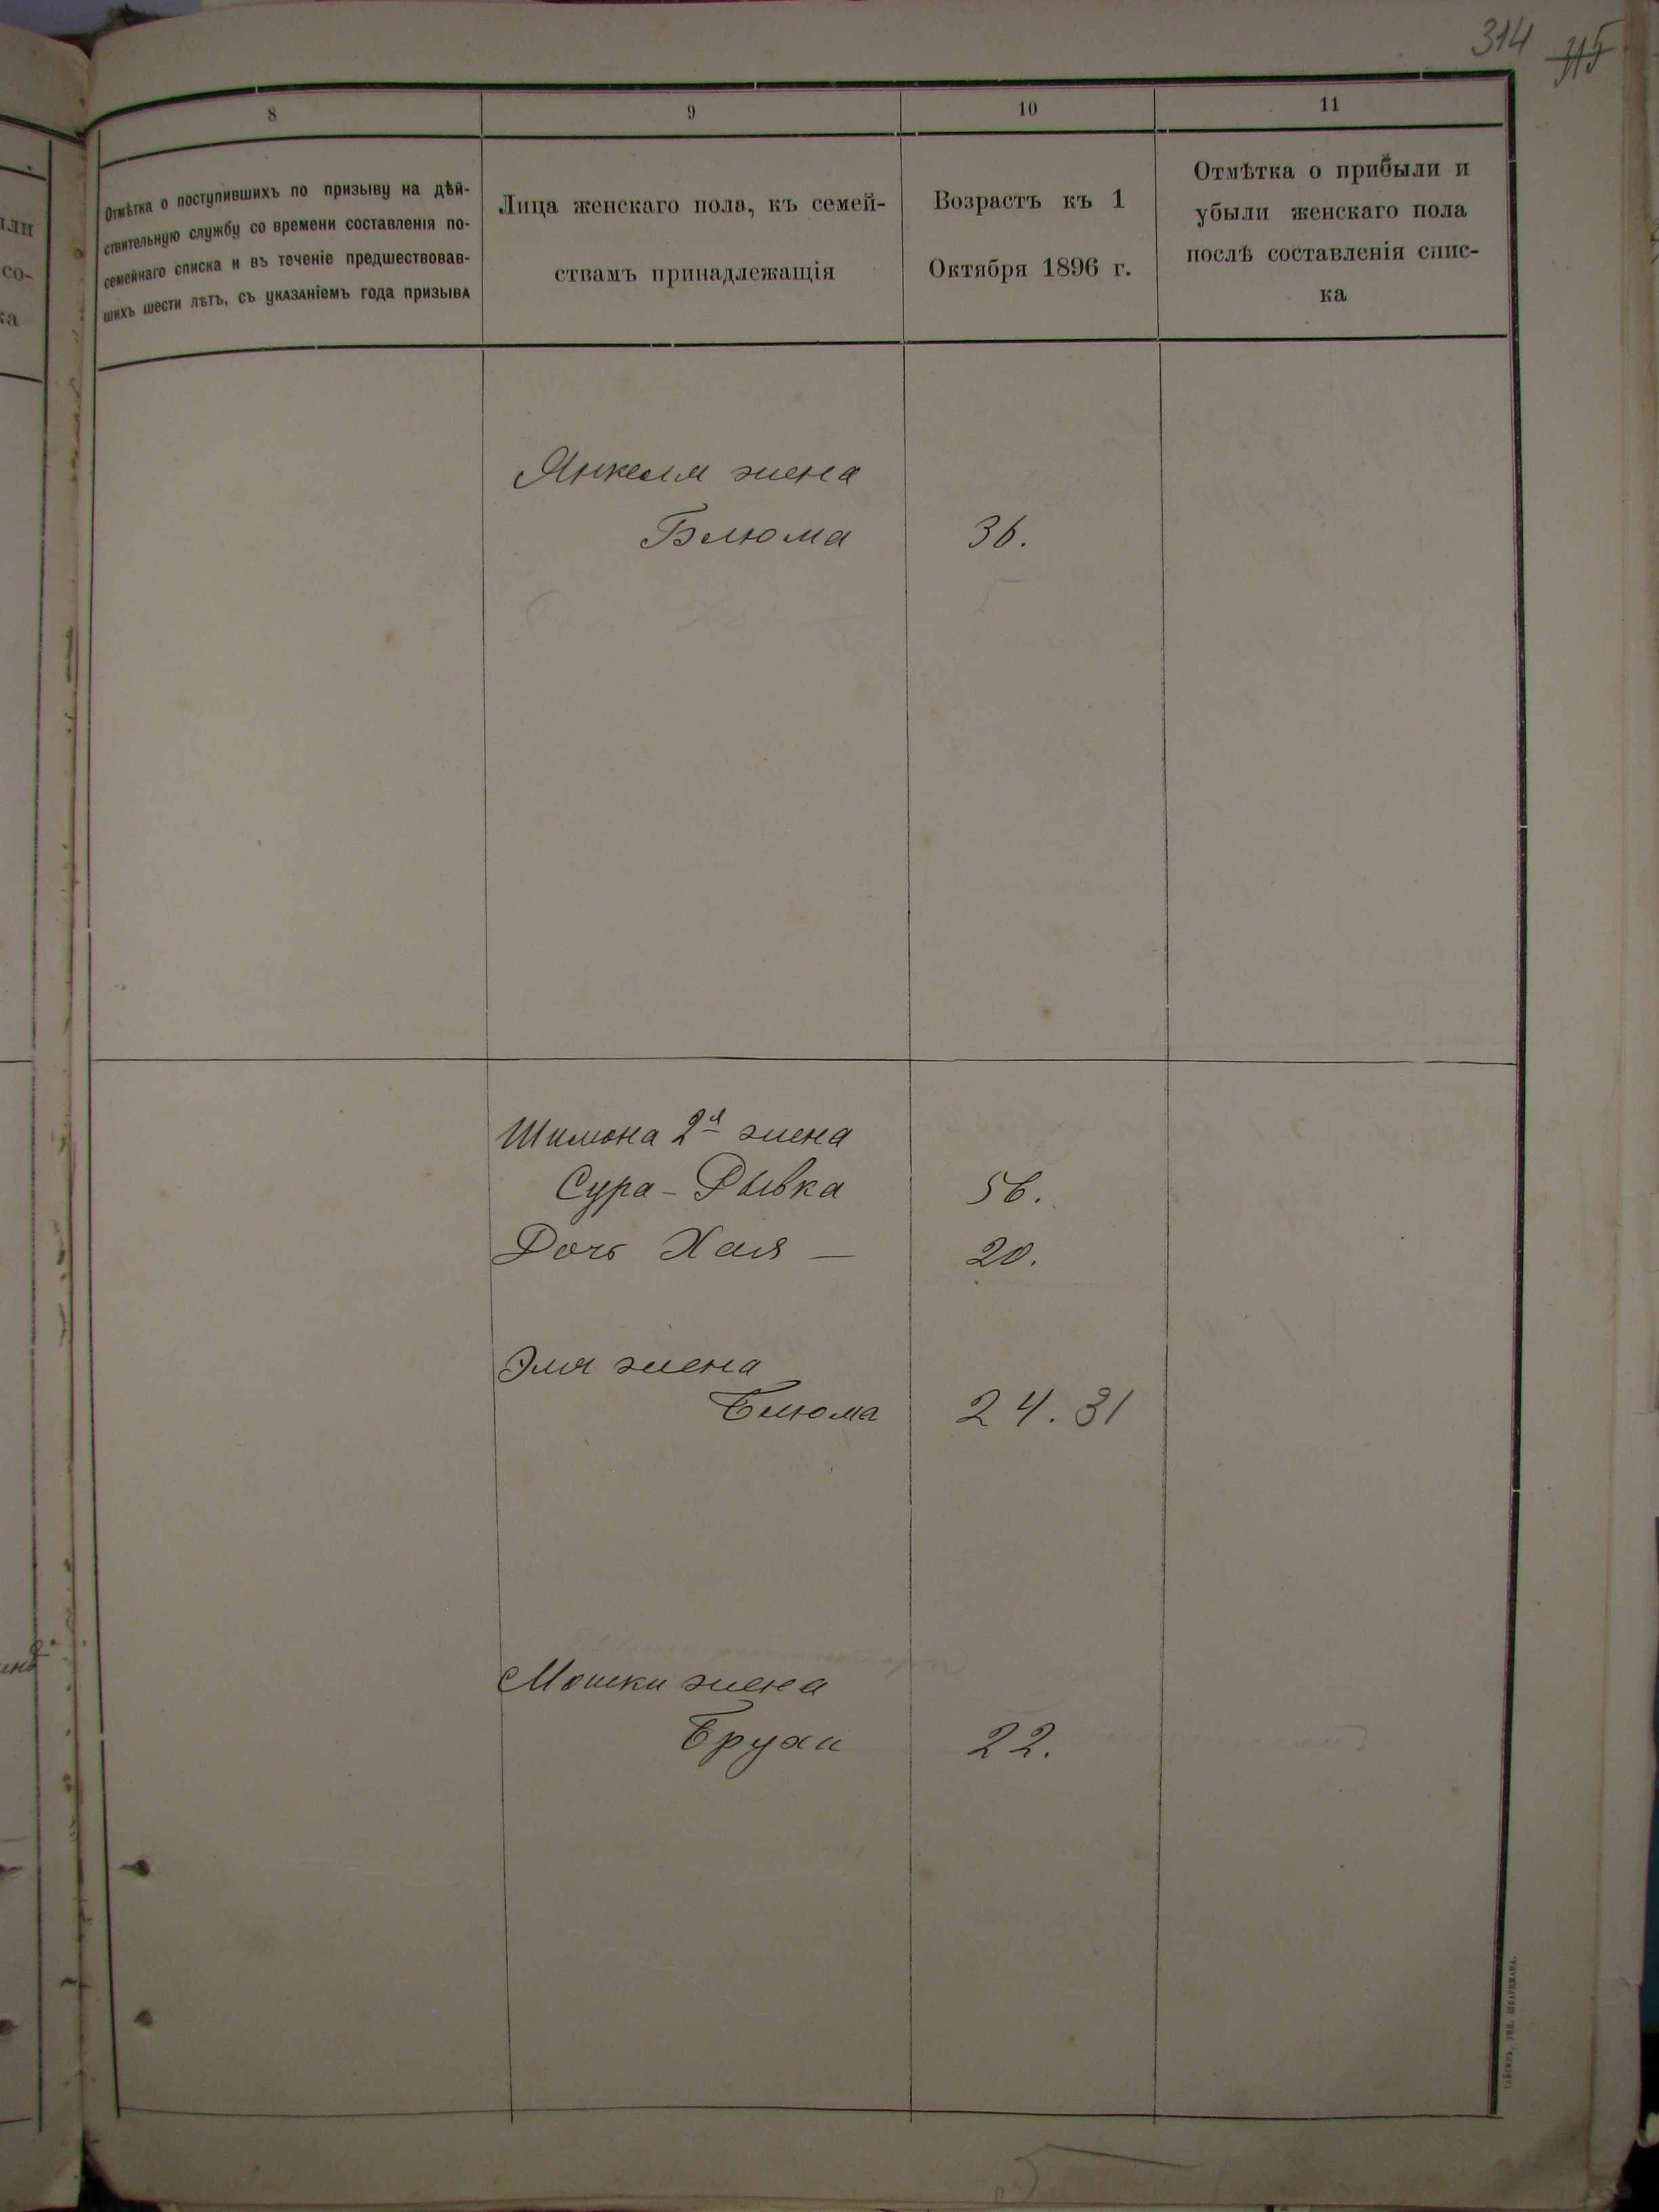 314 315
8
9
10
11
Отмѣтка о поступившихъ по призыву на дѣй-
ствительную службу со времени составленія по-
семейнаго списка и въ теченіе предшествовав-
шихъ шести лѣтъ, съ указаніемъ года призыва
Лица женскаго пола, къ семей-
ствамъ принадлежащія
Возрастъ къ 1
Октября 1896 г.
Отмѣтка о прибыли и
убыли женскаго пола
послѣ составленія спис-
ка
Янкеля жена
Блюма 36.
Шимона 2я жена
Сура-Рывка 56.
Дочь Хая — 20.
Эля жена
Блюма 24. 31
Мошки жена
Брухи 22.